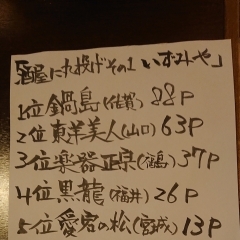 「酒屋に丸投げその1 いずみや」
1位 鍋島(佐賀) 88P
2位 東洋美人(山口) 63P
3位 楽器正宗(福島) 37P
4位 黒龍(福井) 26P
5位 愛宕の松(宮城) 13P